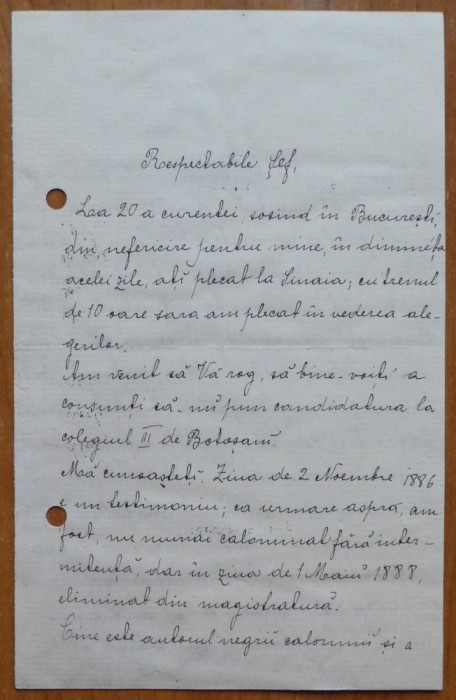 Respectabile Șef,
La 20 a curentei, sosind în București,
din nefericire pentru mine, în diminéța
acelei zile, ați plecat la Sinaia; cu trenul
de 10 oare sara am plecat în vederea ale-
gerilor.
Am venit să Vă rog, să bine-voiți a
consunți să-mĭ pun candidatura la
colegiul III de Botoșanĭ.
Mă cunoașteți. Ziua de 2 Noembre 1886
e un testimoniu; ca urmare aspră, am
fost, nu numai calomniat fără inter-
mitență, dar în ziua de 1 Maiŭ 1888,
eliminat din magistratură.
Cine este autorul negrii calomnii și a